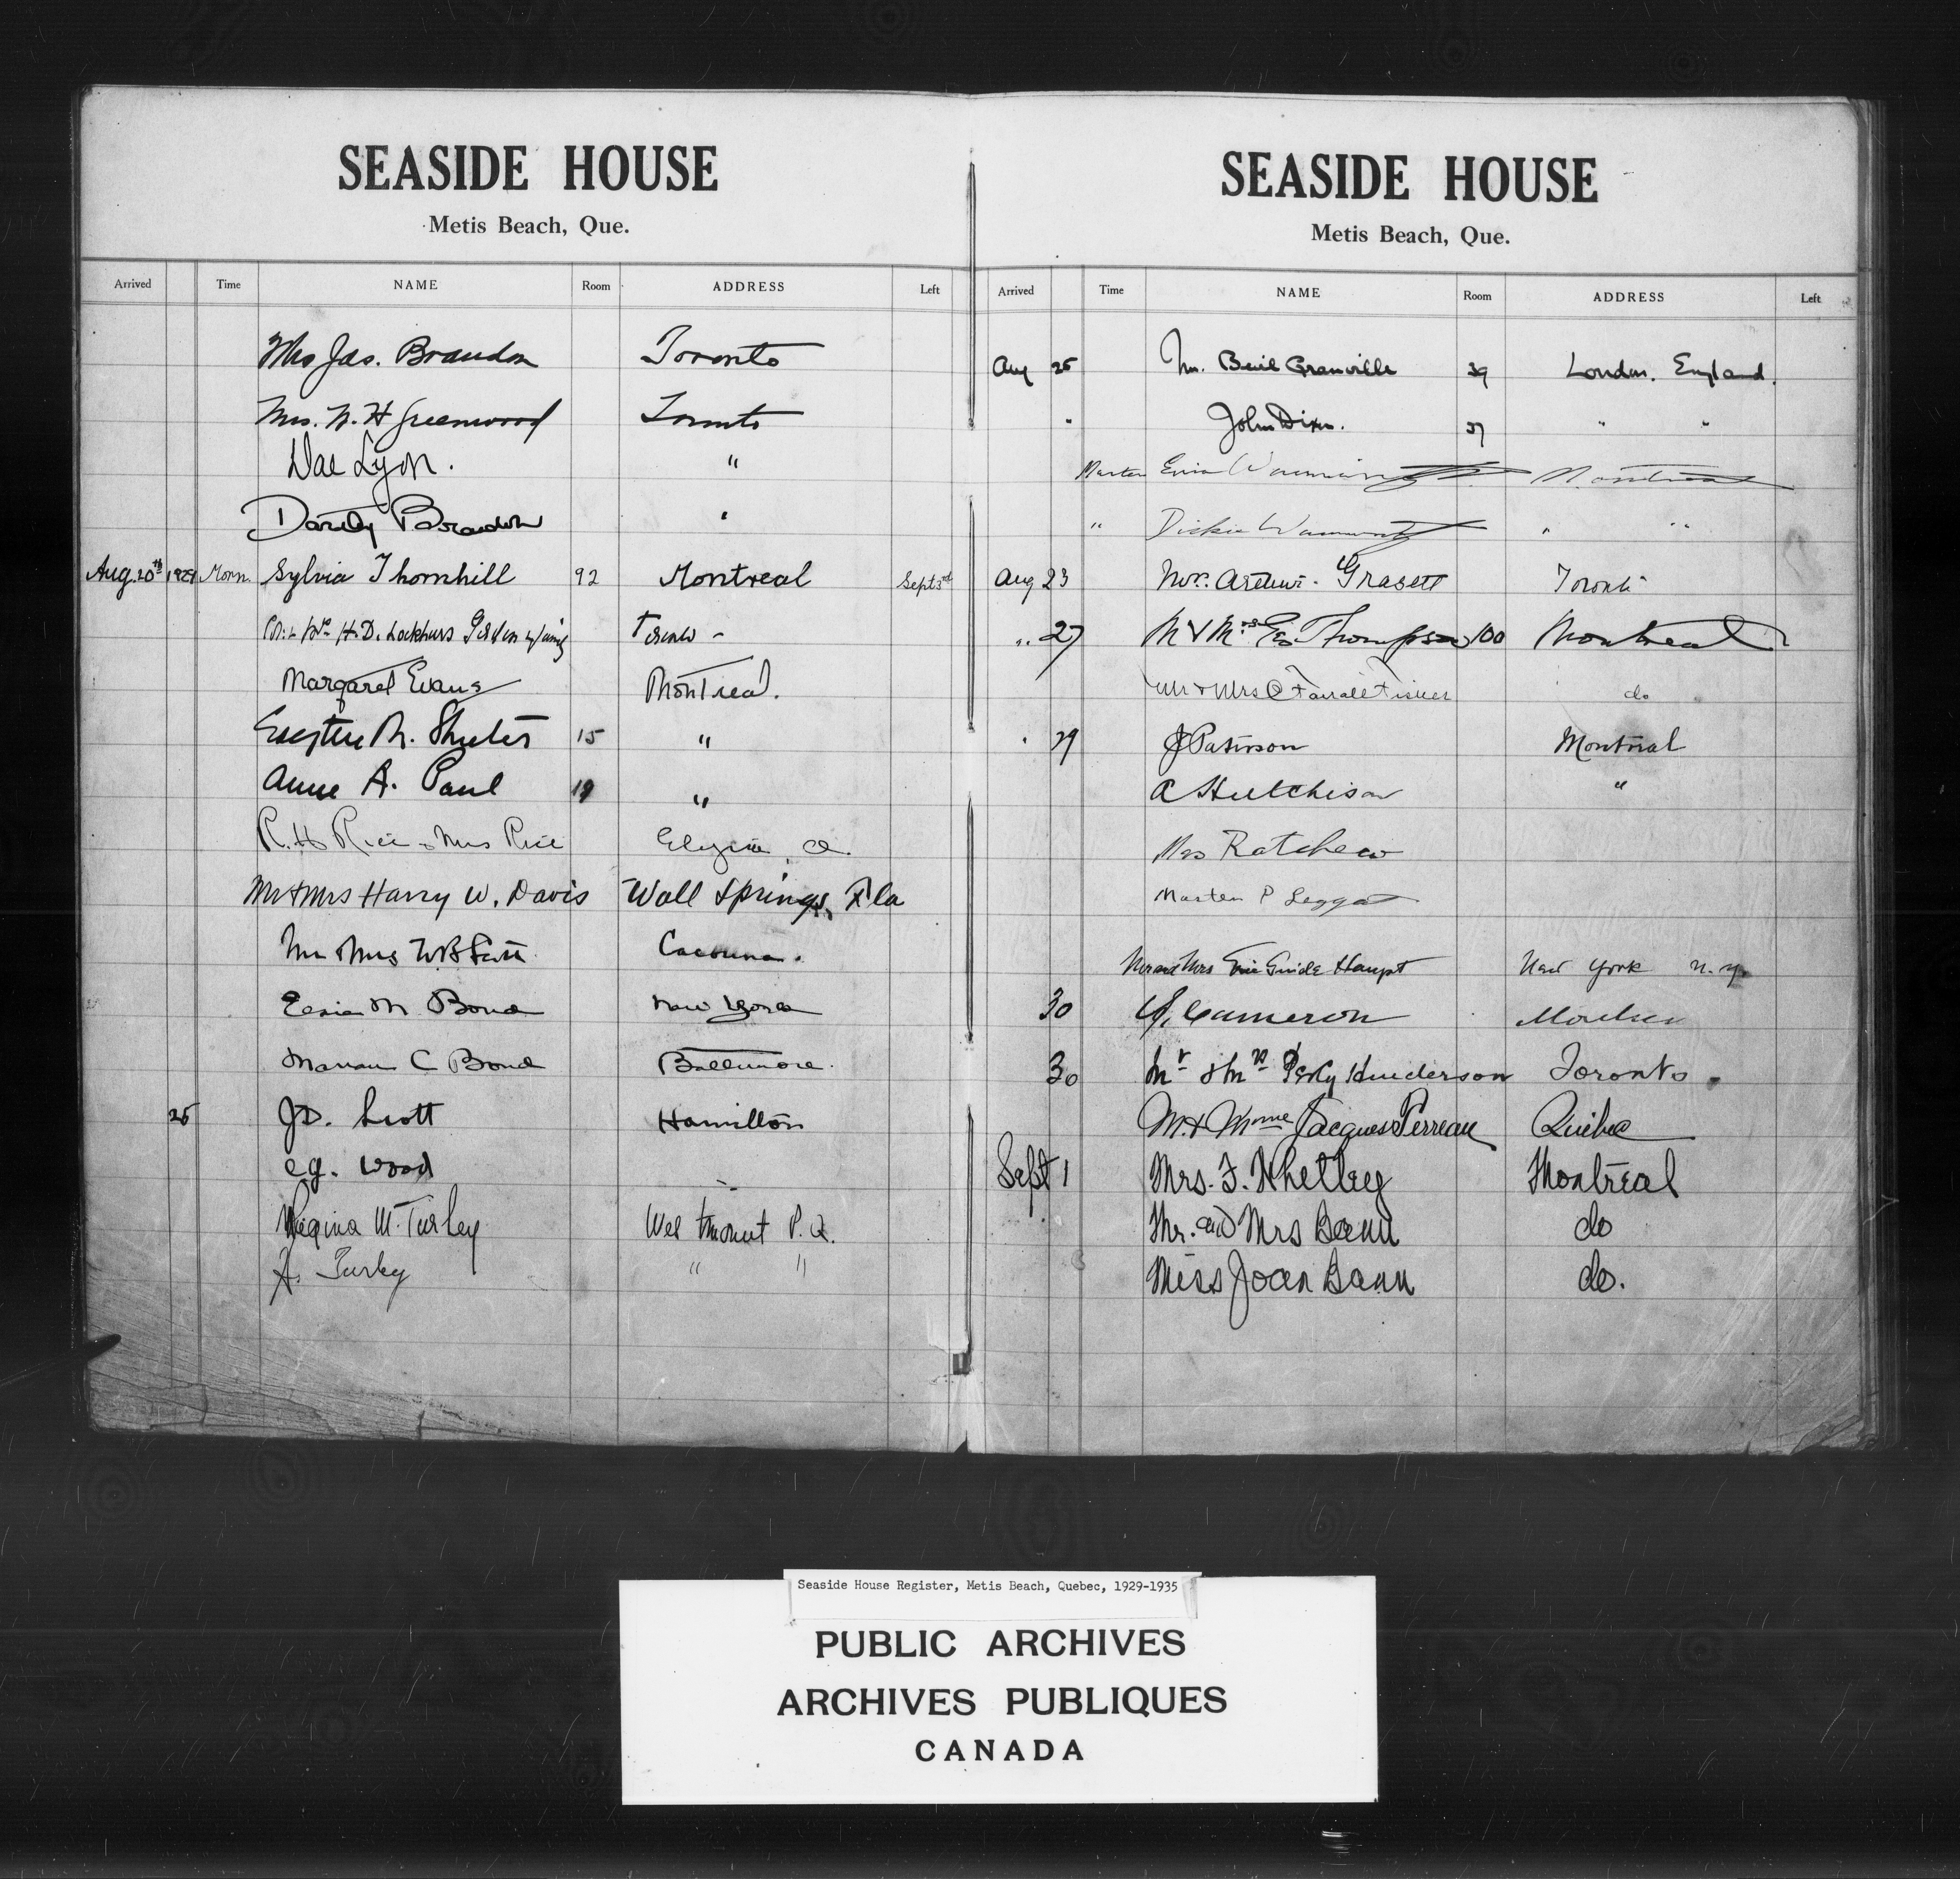 SEASIDE HOUSE
Metis Beach, Que.
Arrived Time NAME Room ADDRESS Left
Mrs Jas. Brandon Toronto
Mrs. N. H Greenwood Toronto
Lyon. "
Brandon "
Aug. 20th 1929 Morn. Sylvia Thornhill 92 Montreal Sept 3rd
H. D.
Margaret Evans Montreal.
15 "
Anne A. Paul 19 "
R. H Rice & Mrs Rice O.
Mr & Mrs Harry W. Davis Wall Springs, Fla
Mrs Cacouna.
M Bond New York
Marian C Bond Baltimore.
25 J D. Scott Hamilton
Wood "
Regina M. Turley Westmount P. Q.
A. Turley " "
SEASIDE HOUSE
Metis Beach, Que.
Arrived Time NAME Room ADDRESS Left
Aug 25 Granville 39 London. England.
" John Dixon. 37 " "
Master Montreal
" Dickie " "
Aug 23 Grasett Toronto
" 27 M & Mrs Thompson 100 Montreal
Mr & Mrs do
" 29 J Paterson Montreal
A Hutchison "
Mrs
Master P Leggat
Mr and Mrs Guide Haupt New York N. Y.
30 Cameron
30 Mr & Mrs Henderson Toronto.
M. & Mme Jacques Perreau Quebec
Sept 1 Mrs. F. Whetley Montreal
Mr. and Mrs Bann do
Miss Joan Bann do.
Seaside House Register, Metis Beach, Quebec, 1929-1935
PUBLIC ARCHIVES
ARCHIVES PUBLIQUES
CANADA